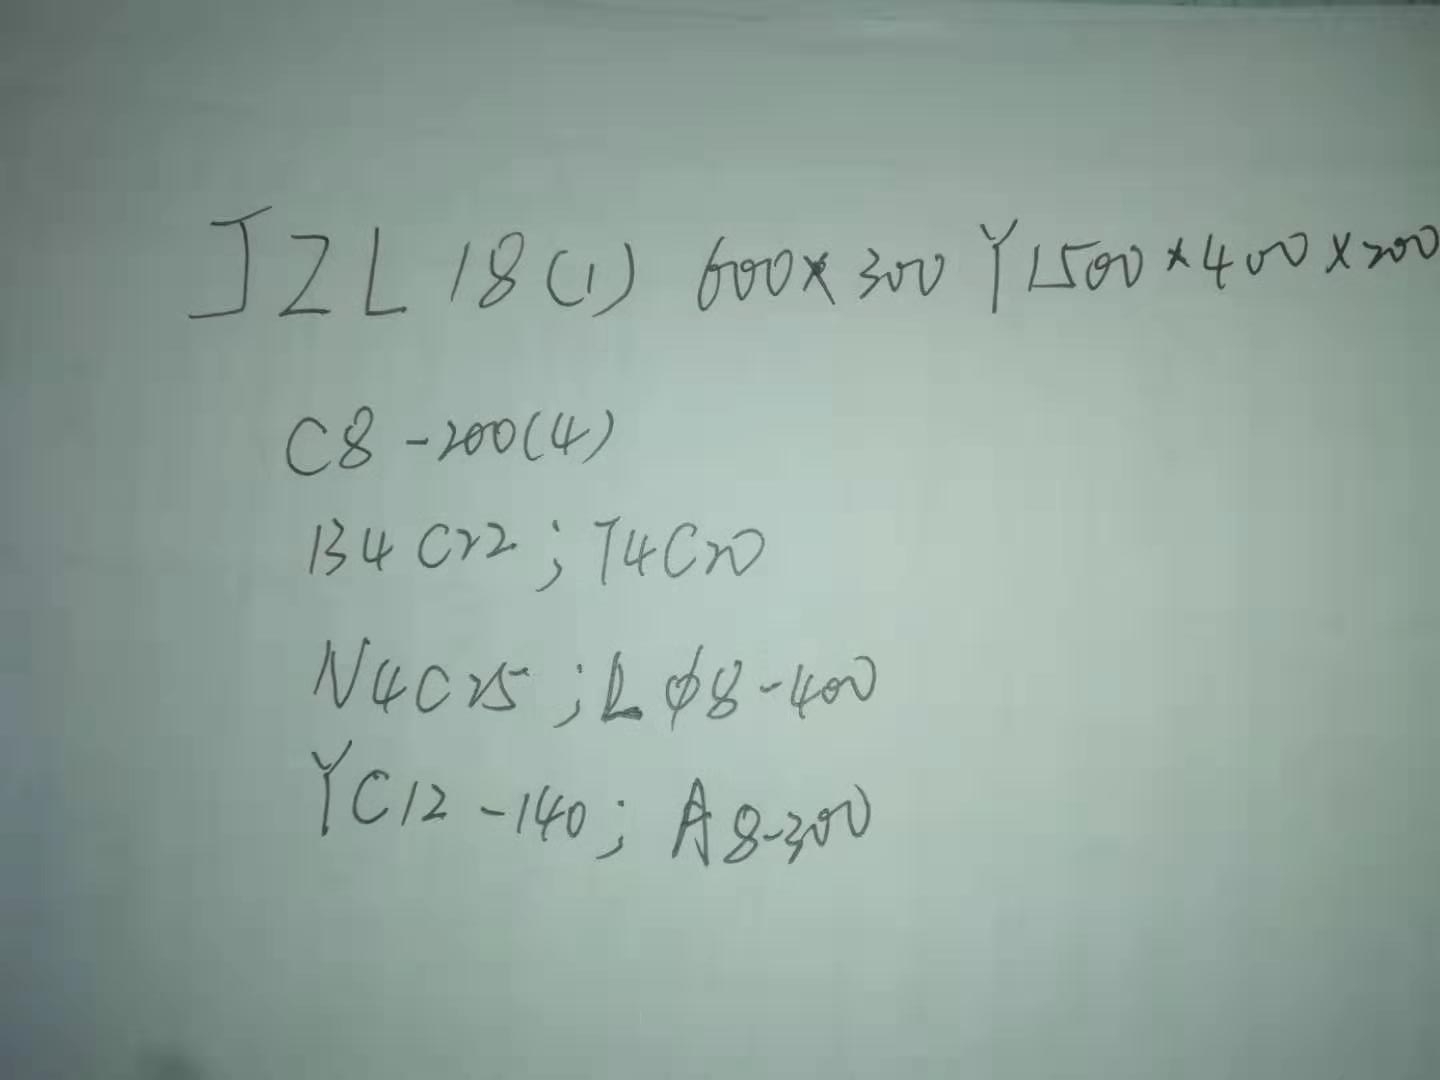 JZL18(1) 600×300 Y1500×400×200
C8-200(4)
B4C22;T4C20
N4C25;Lφ8-400
YC12-140;A8-300